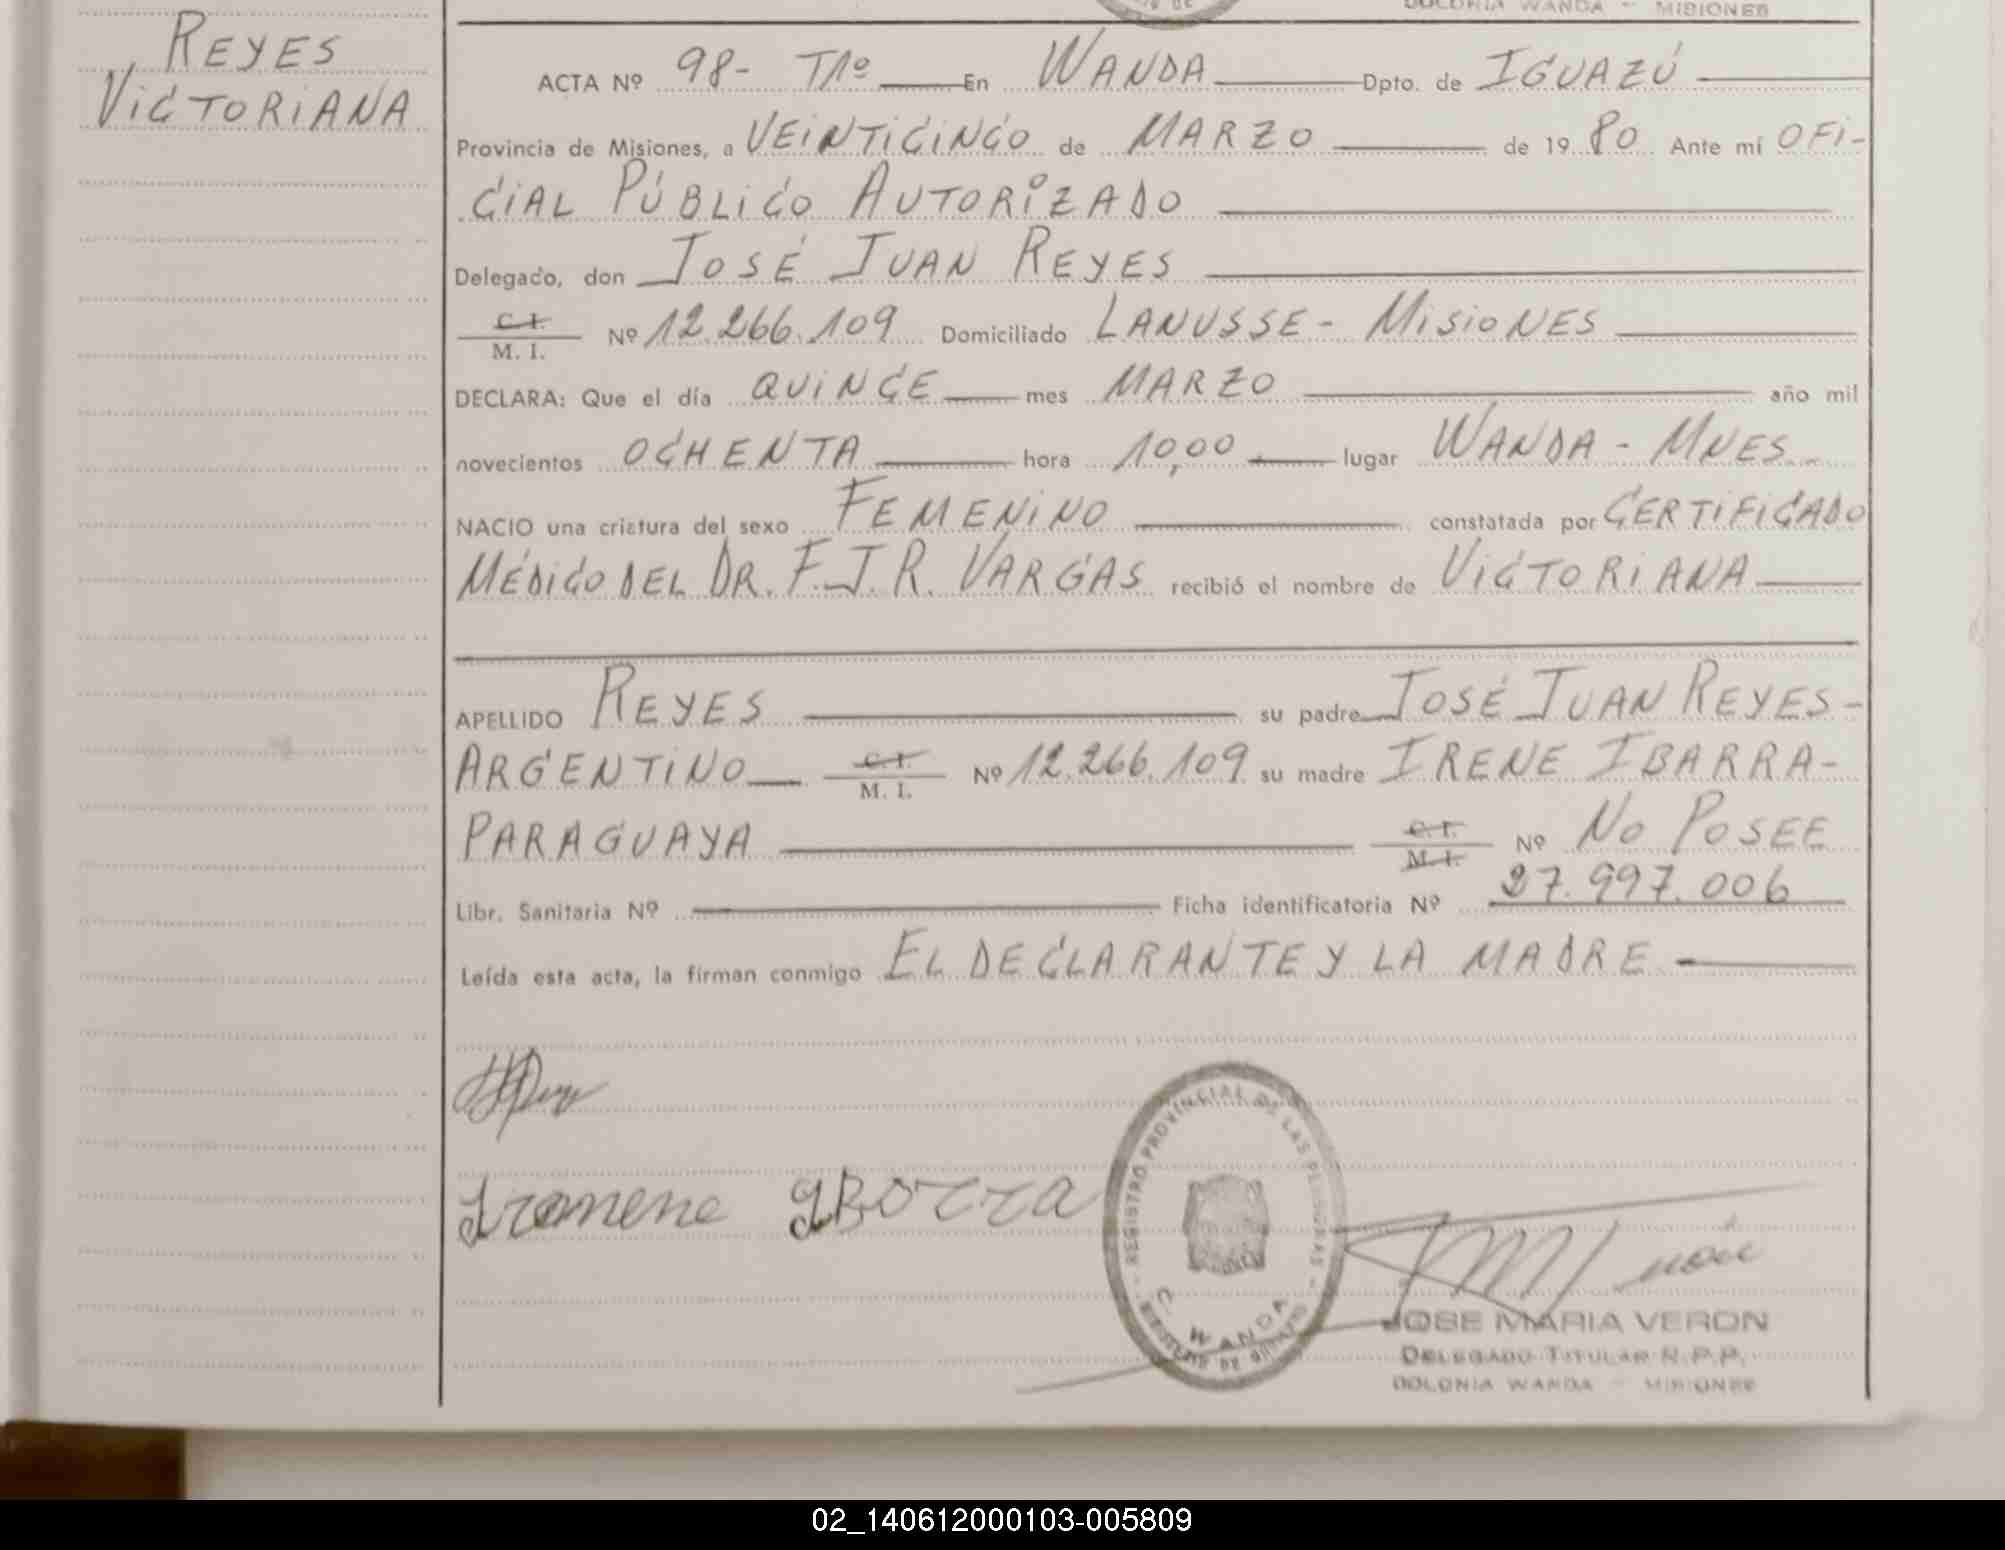 COLONIA WANDA - MISIONES
REYES
VICTORIANA
ACTA Nº 98- T1º En WANDA Dpto. de IGUAZÚ
Provincia de Misiones, a VEINTICINCO de MARZO de 19 80 Ante mí OFI-
CIAL PÚBLICO AUTORIZADO
Delegado, don JOSÉ JUAN REYES
C. I.
M. I. Nº 12.266.109 Domiciliado LANUSSE - MISIONES
DECLARA: Que el día QUINCE mes MARZO año mil
novecientos OCHENTA hora 10,00 lugar WANDA - MNES.
NACIO una criatura del sexo FEMENINO constatada por CERTIFICADO
MÉDICO DEL DR. F.J.R. VARGAS recibió el nombre de VICTORIANA
APELLIDO REYES su padre JOSÉ JUAN REYES -
ARGENTINO C. I. M. I. Nº 12.266.109 su madre IRENE IBARRA -
PARAGUAYA C. I. M. I. Nº NO POSEE
Libr. Sanitaria Nº Ficha identificatoria Nº 27.997.006
Leída esta acta, la firman conmigo EL DECLARANTE Y LA MADRE
REGISTRO PROVINCIAL DE LAS PERSONAS
C. WANDA
JOSE MARIA VERON
DELEGADO TITULAR R.P.P.
COLONIA WANDA - MISIONES
02_140612000103-005809